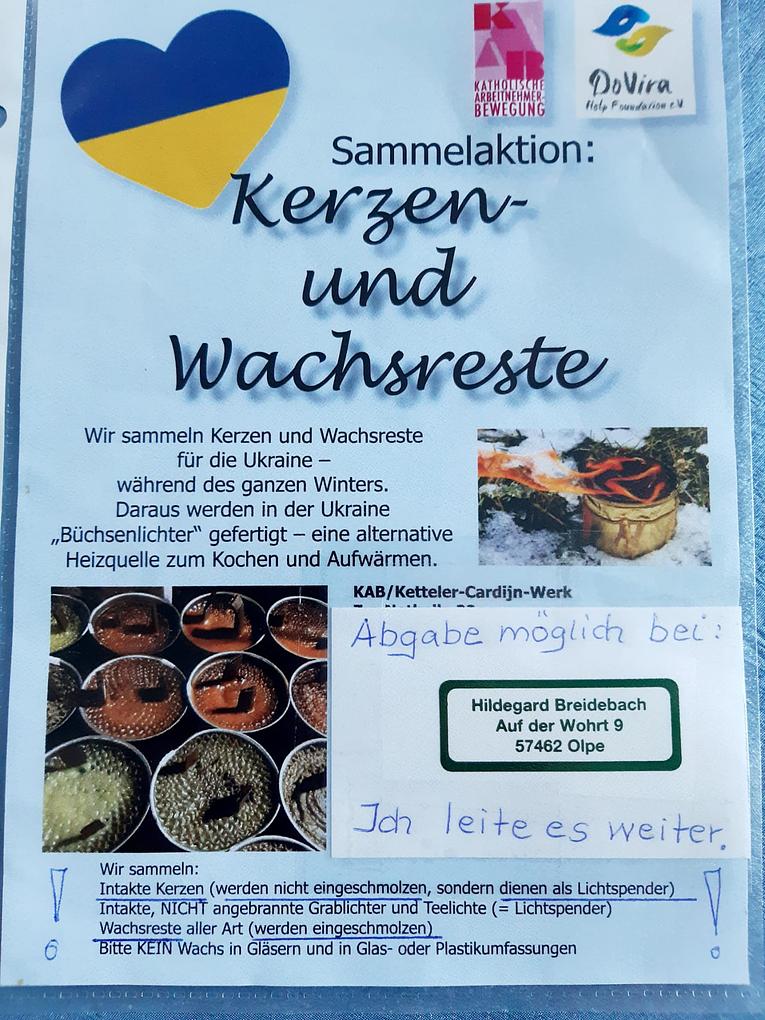 KAB
KATHOLISCHE
ARBEITNEHMER-
BEWEGUNG
DoVira
Help Foundation e.V.
Sammelaktion:
Kerzen-
und
Wachsreste
Wir sammeln Kerzen und Wachsreste
für die Ukraine –
während des ganzen Winters.
Daraus werden in der Ukraine
„Büchsenlichter“ gefertigt – eine alternative
Heizquelle zum Kochen und Aufwärmen.
KAB/Ketteler-Cardijn-Werk
Abgabe möglich bei:
Hildegard Breidebach
Auf der Wohrt 9
57462 Olpe
Ich leite es weiter.
Wir sammeln:
! Intakte Kerzen (werden nicht eingeschmolzen, sondern dienen als Lichtspender) !
Intakte, NICHT angebrannte Grablichter und Teelichte (= Lichtspender)
Wachsreste aller Art (werden eingeschmolzen)
Bitte KEIN Wachs in Gläsern und in Glas- oder Plastikumfassungen